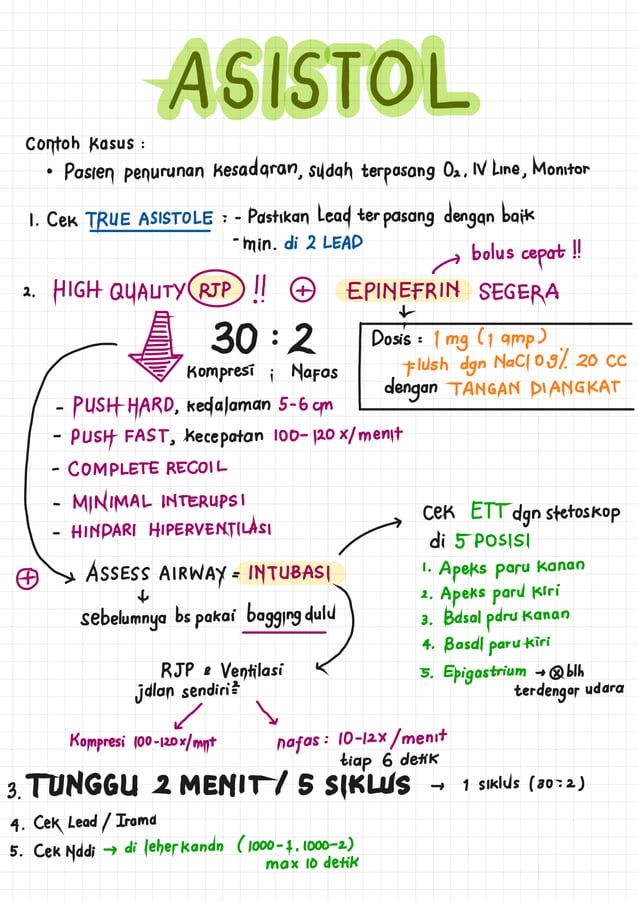 ASISTOL
Contoh Kasus :
• Pasien penurunan kesadaran, sudah terpasang O2, IV Line, Monitor
1. Cek TRUE ASISTOLE : - Pastikan Lead terpasang dengan baik
- min. di 2 LEAD
bolus cepat !!
2. HIGH QUALITY RJP !! ⊕ EPINEFRIN SEGERA
30 : 2
Kompresi ; Nafas
Dosis : 1 mg (1 amp)
flush dgn NaCl 0,9% 20 CC
dengan TANGAN DIANGKAT
- PUSH HARD, kedalaman 5-6 cm
- PUSH FAST, kecepatan 100-120 x/menit
- COMPLETE RECOIL
- MINIMAL INTERUPSI
- HINDARI HIPERVENTILASI
⊕ → ASSESS AIRWAY = INTUBASI
↓
sebelumnya bs pakai bagging dulu
Cek ETT dgn stetoskop
di 5 POSISI
1. Apeks paru kanan
2. Apeks paru kiri
3. Basal paru kanan
4. Basal paru kiri
5. Epigastrium → ⊗ blh
terdengar udara
RJP & Ventilasi
jalan sendiri²
Kompresi 100-120x/mnt
nafas : 10-12x/menit
tiap 6 detik
3. TUNGGU 2 MENIT / 5 SIKLUS → 1 siklus (30:2)
4. Cek Lead / Irama
5. Cek Nadi → di leher kanan (1000-1, 1000-2)
max 10 detik